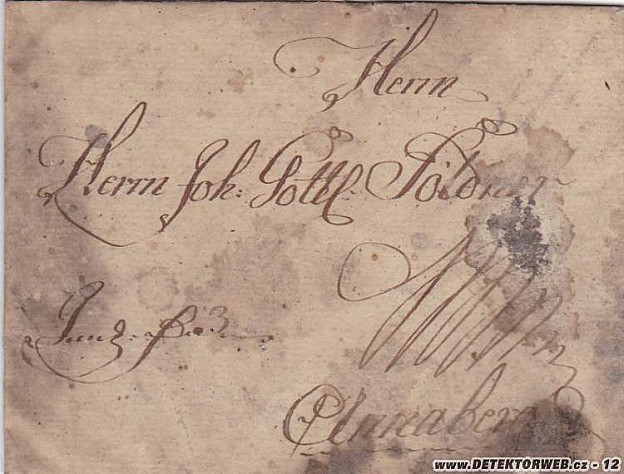 Herrn
Herrn Joh: Gottl: Földner
Annaberg
WWW.DETEKTORWEB.cz - 12